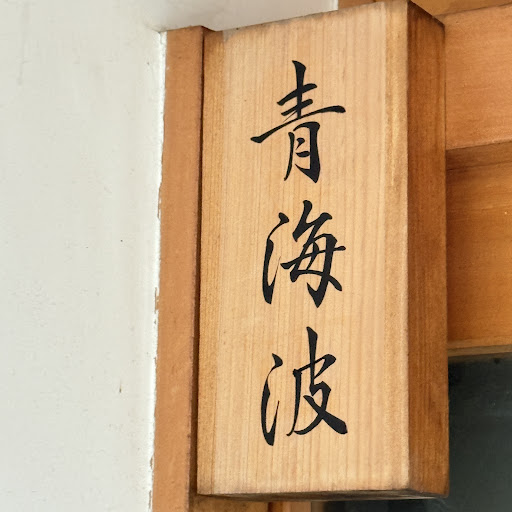 青海波